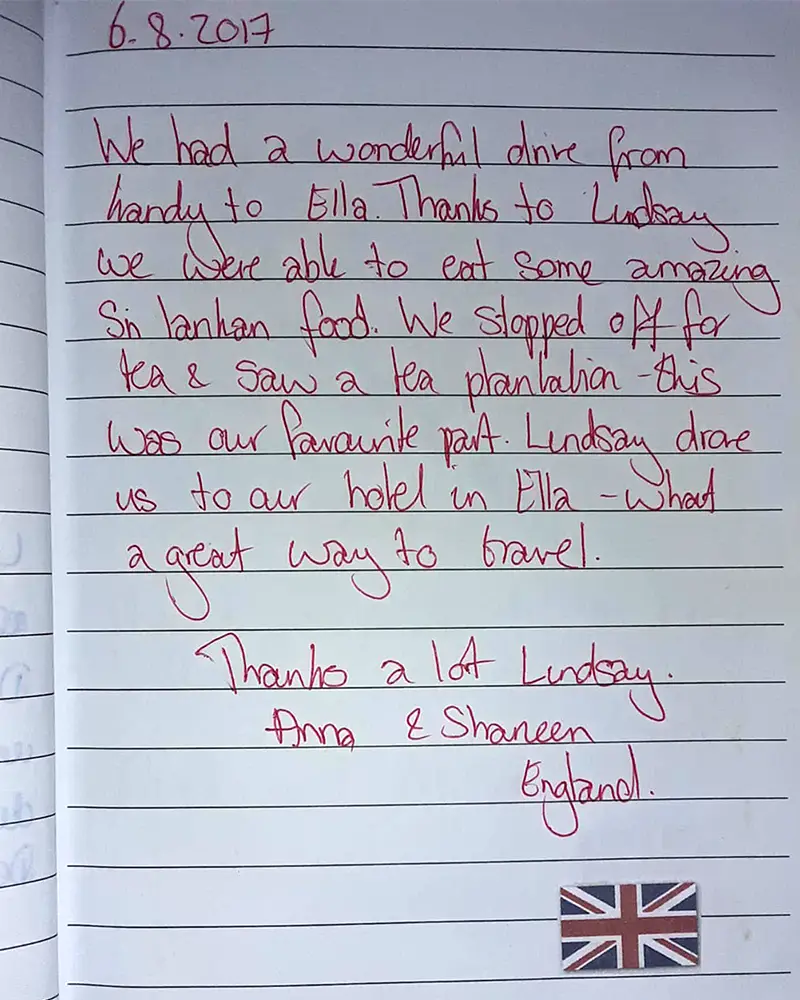 6.8.2017
We had a wonderful drive from
handy to Ella. Thanks to Lindsay
we were able to eat some amazing
Sri lankan food. We stopped off for
tea & saw a tea plantation - this
was our favourite part. Lindsay drove
us to our hotel in Ella - what
a great way to travel.
Thanks a lot Lindsay.
Anna & Shaneen
England.